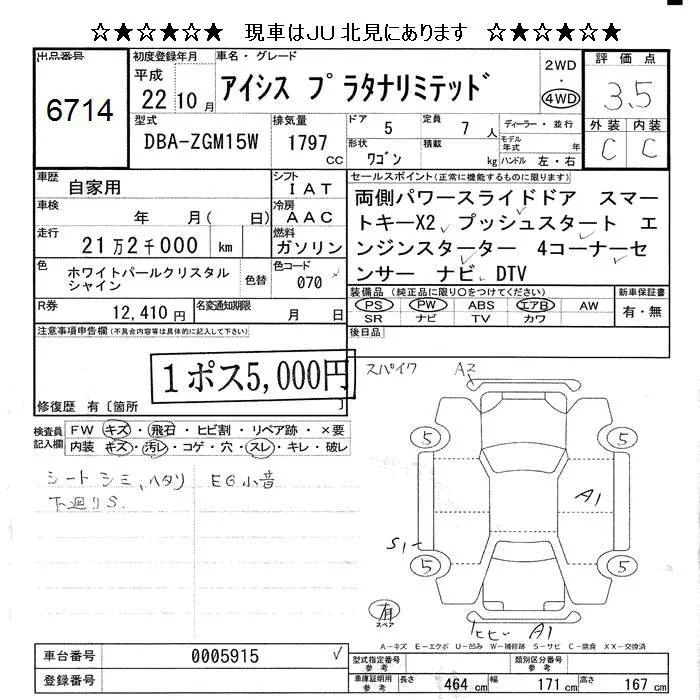 ☆★☆★☆★ 現車はJU北見にあります ☆★☆★☆★
出品番号 初度登録年月 車名・グレード 2WD 評価点
6714 平成 22 10月 アイシス プラタナリミテッド ・ 4WD 3.5
外装 内装
C C
型式 排気量 ドア 定員 ディーラー・並行
DBA-ZGM15W 1797 CC 5 7 人 モデル年式 年
形状 積載 ワゴン kg ハンドル 左・右
車歴 自家用 シフト IAT セールスポイント(正常に機能するものに限り)
車検 年 月( 日) 冷房 AAC 両側パワースライドドア スマー
走行 21万2千000 km 燃料 ガソリン トキーX2 プッシュスタート エ
ンジンスターター 4コーナーセ
ンサー ナビ DTV
色 ホワイトパールクリスタル 色替 色コード
シャイン 070
R券 12,410円 名変通知期限 月 日
装備品(純正品に限り○をつけてください) 新車保証書
PS PW ABS エアB AW 有・無
SR ナビ TV カワ
注意事項申告欄(不具合内容等は具体的に記入して下さい) 後日品
1ポス5,000円
修復歴 有〔箇所 〕
検査員記入欄 FW キズ・飛石・ヒビ割・リペア跡・×要
内装 キズ・汚レ・コゲ・穴・スレ・キレ・破レ
シート シミ、ヘタリ EG小音
下廻りS.
スパイク A2
5 5
A1
S1
5 5
有 スペア
ヒビ A1
A-キズ E-エクボ U-凹み W-補修跡 S-サビ C-腐食 XX-交換済
車台番号 0005915
登録番号
型式指定番号 参考 類別区分番号 参考
車庫証明用 参考 長さ 464 cm 幅 171 cm 高さ 167 cm